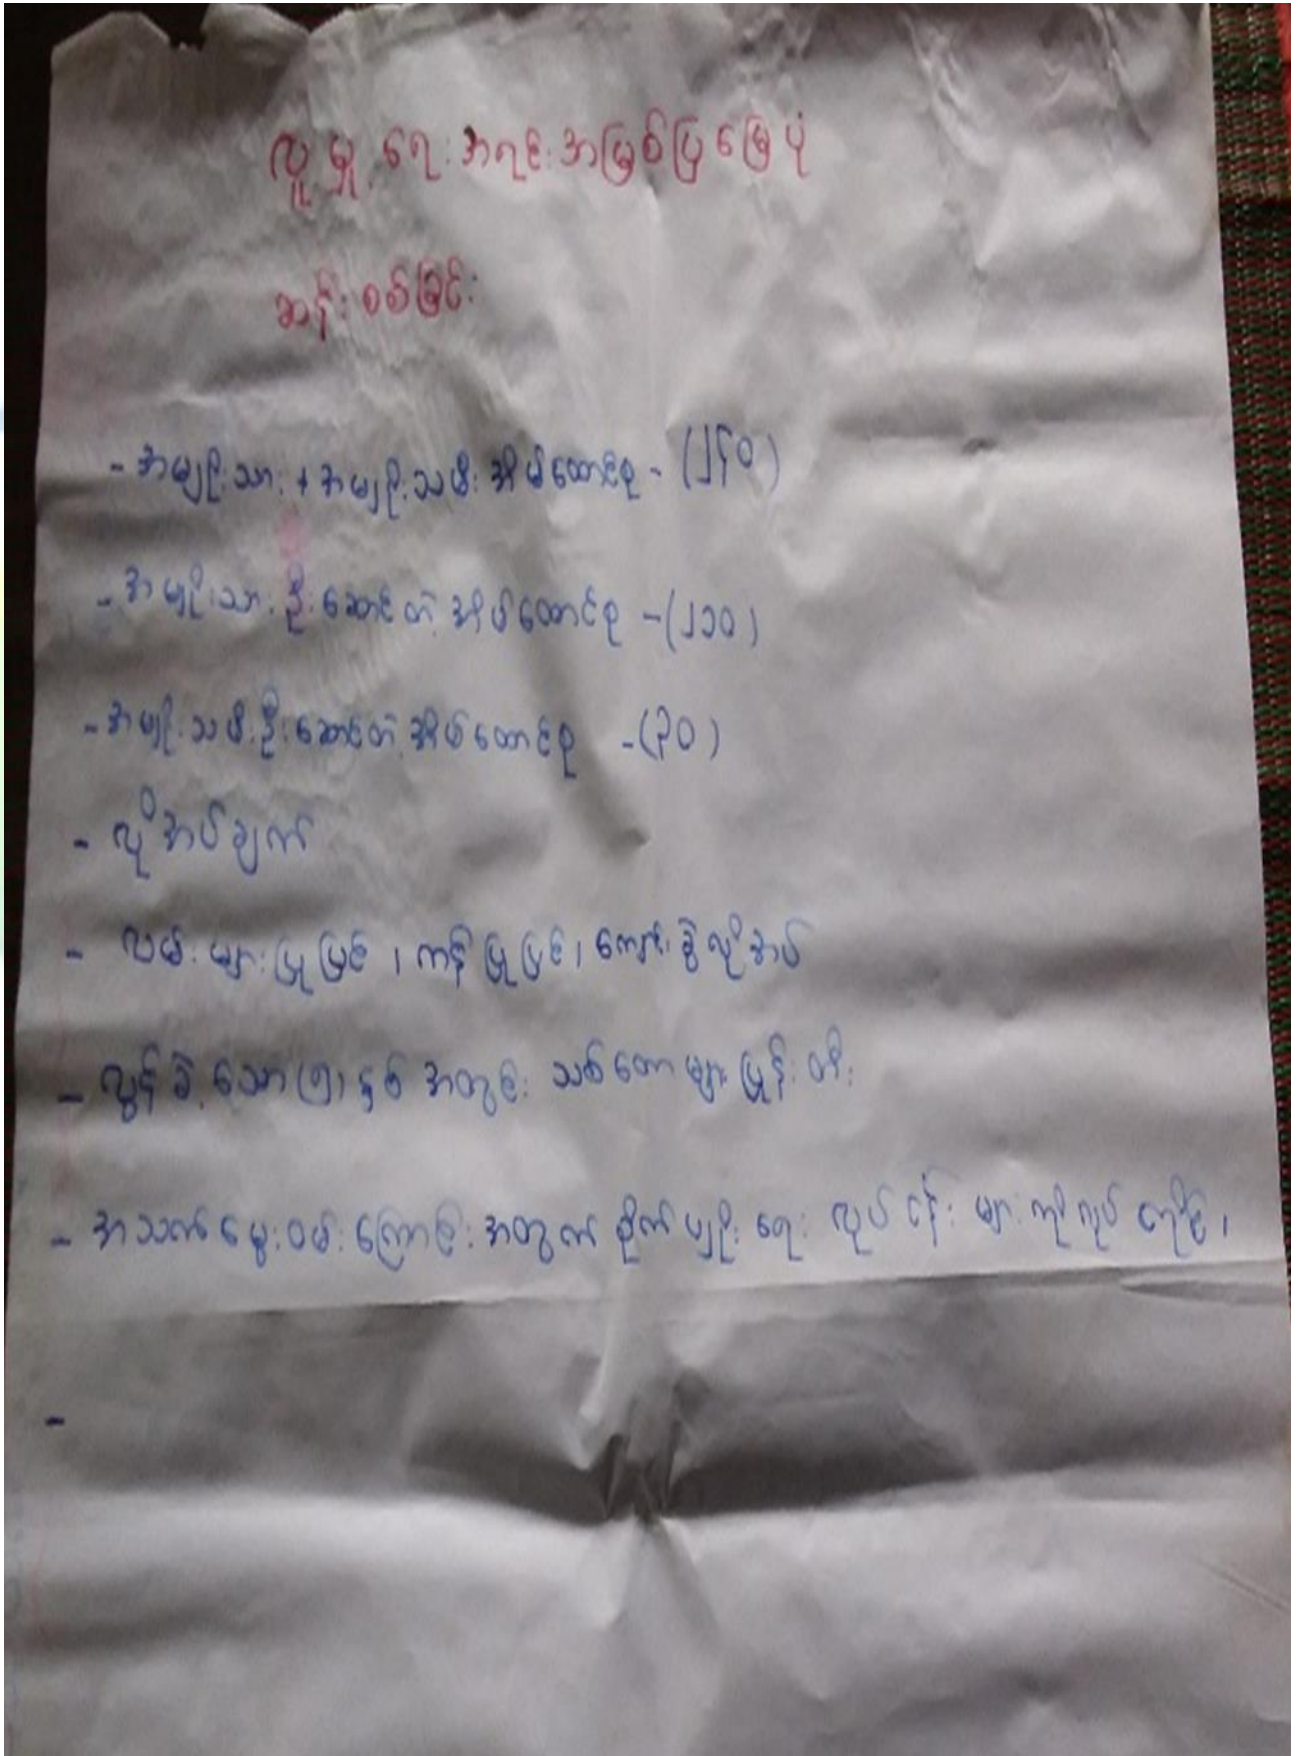 လူမှုရေးအရင်းအမြစ်ပြမြေပုံ
ဆန်းစစ်ခြင်း
- အမျိုးသား + အမျိုးသမီး အိမ်ထောင်စု - (၂၄၀)
- အမျိုးသား ဦးဆောင်တဲ့ အိမ်ထောင်စု - (၂၁၀)
- အမျိုးသမီး ဦးဆောင်တဲ့ အိမ်ထောင်စု - (၃၀)
- လိုအပ်ချက်
- လမ်းများပြုပြင်၊ ကန်ပြုပြင်၊ ကျောင်း လိုအပ်
- လွန်ခဲ့သော (၅) နှစ်အတွင်း သစ်တောများပြုန်းတီး
- အသက်မွေးဝမ်းကြောင်းအတွက် စိုက်ပျိုးရေး လုပ်ငန်းများကိုလုပ်ကိုင်၊
-